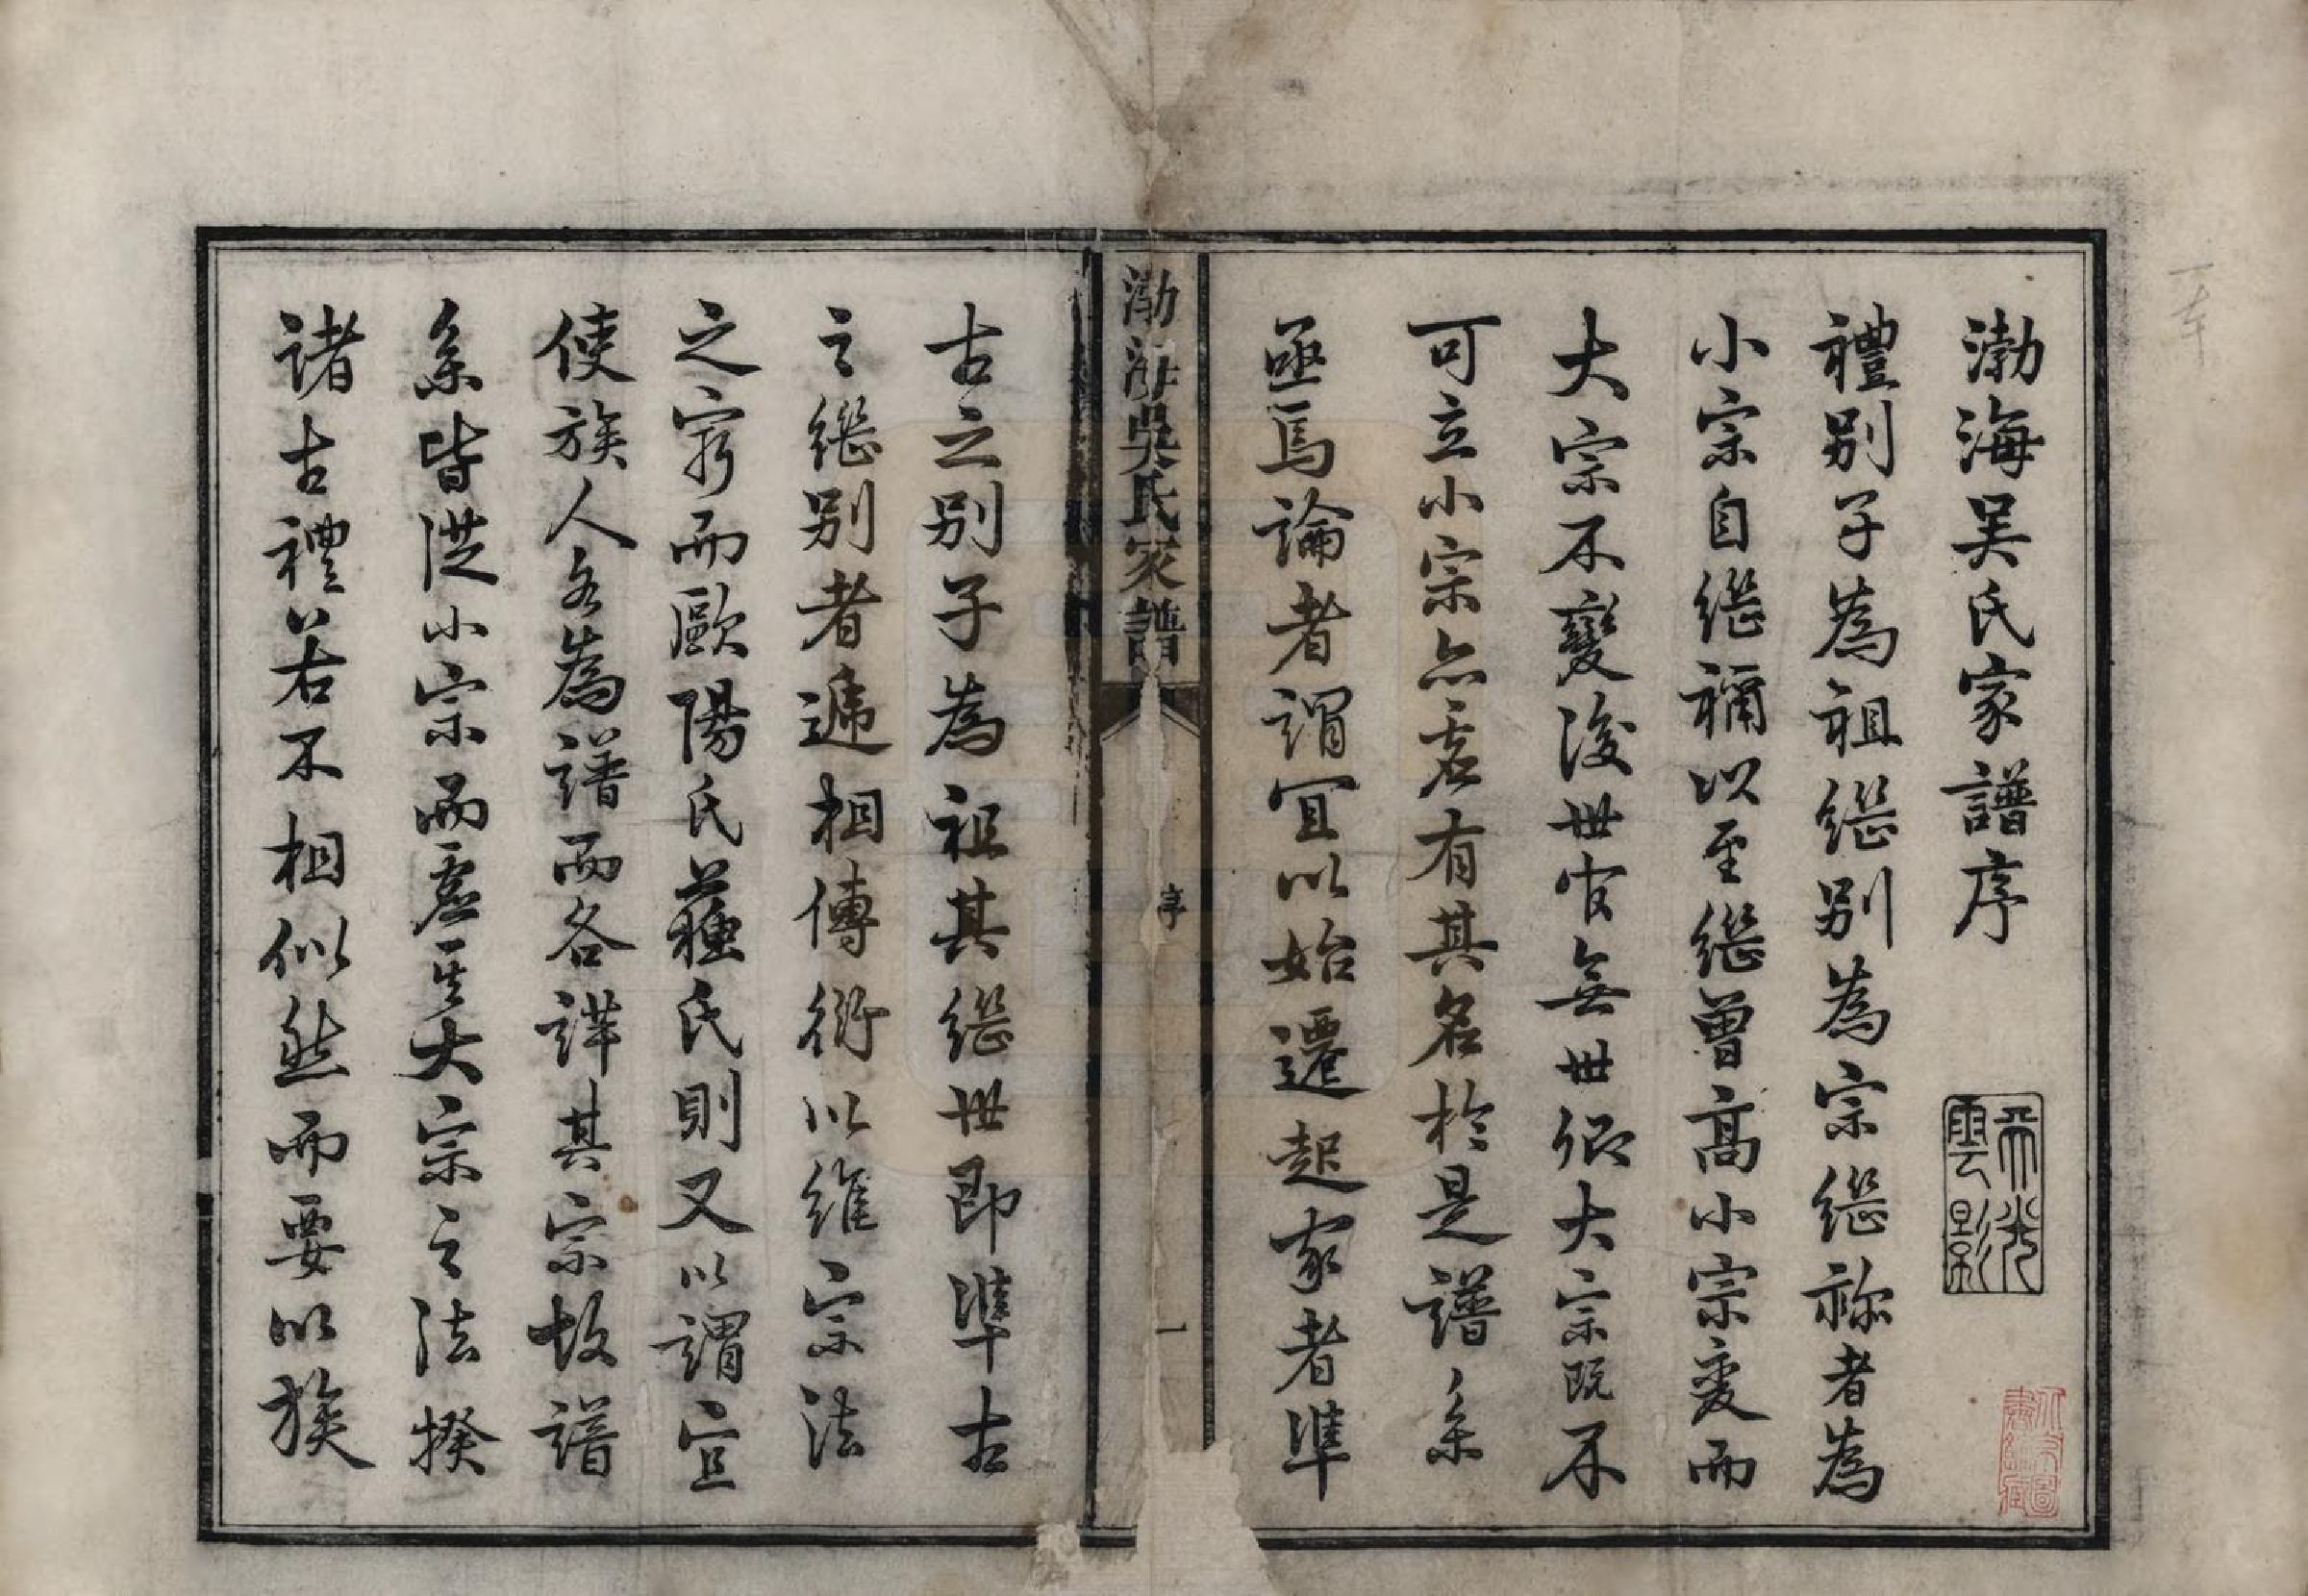 渤海吴氏家譜序
天光雲影
禮别子爲祖繼别爲宗繼祢者爲
小宗自繼禰以至繼曾高小宗変而
大宗不變後世官無世卿大宗既不
可立小宗亦虚有其名於是譜系
亟焉論者謂宜以始遷起家者準
渤海吳氏家譜
序
一
古之别子爲祖其繼世即準古
之繼别者遞相傳衍以維宗法
之窮而歐陽氏蘇氏則又以謂宜
使族人各爲譜而各詳其宗故譜
系皆從小宗而虚其大宗之法揆
諸古禮若不相似然而要以族